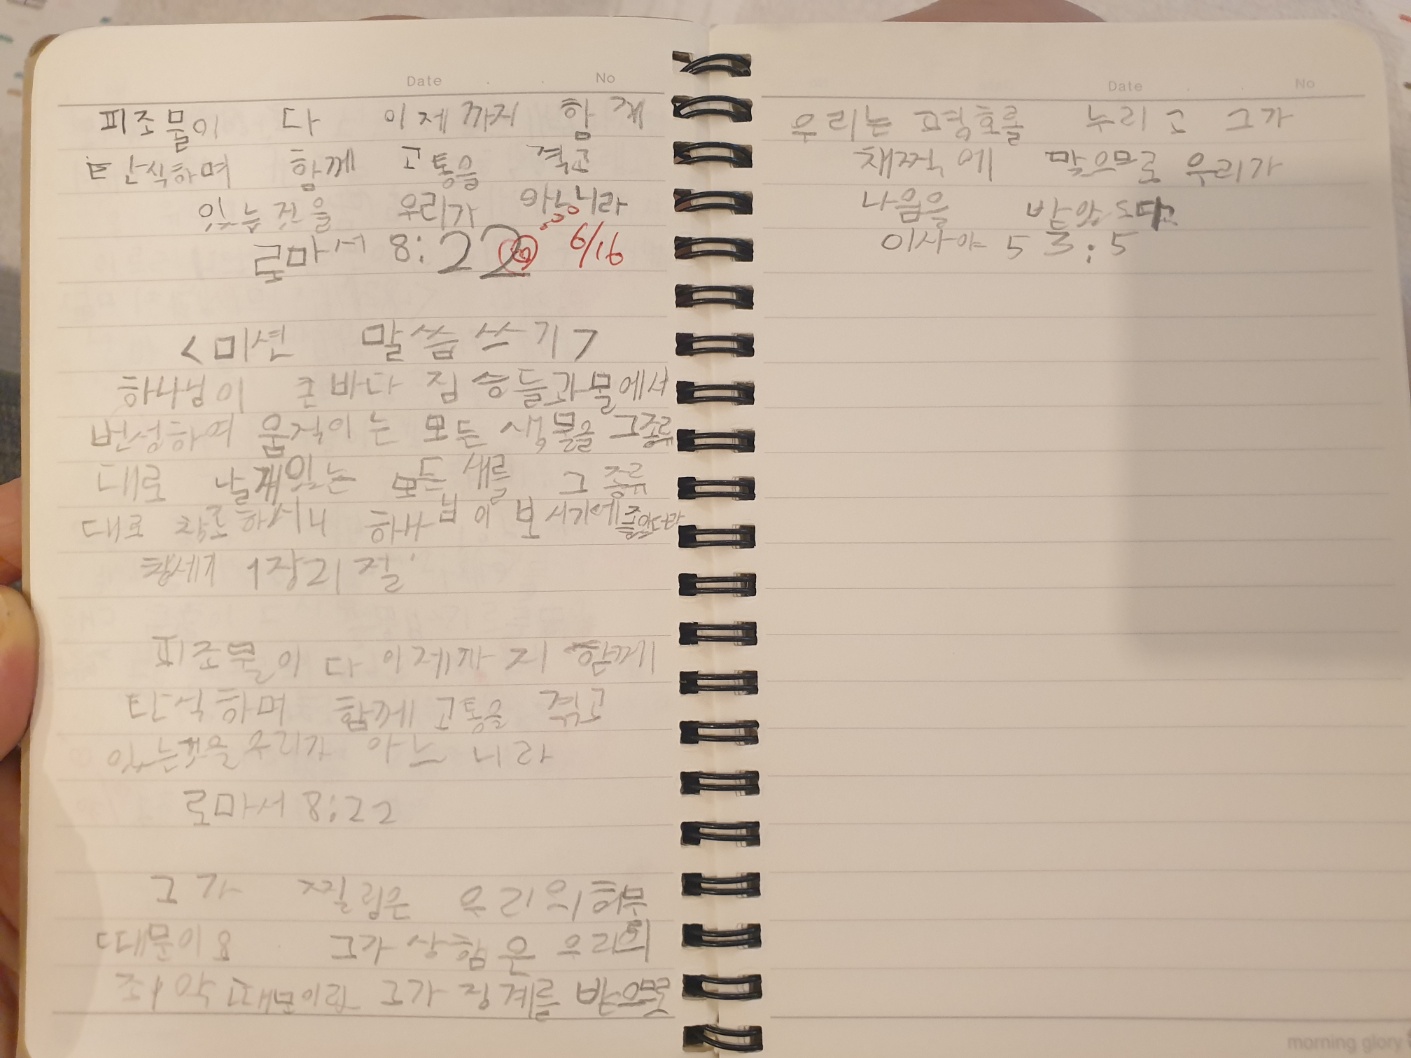 Date No
피조물이 다 이제까지 함께
탄식하며 함께 고통을 겪고
있는것을 우리가 아느니라
로마서 8:22 6/16
<미션 말씀쓰기>
하나님이 큰바다 짐승들과물에서
번성하여 움직이는 모든 생물을 그종류
대로 날개있는 모든새를 그 종류
대로 창조하시니 하나님이 보시기에좋았더라
창세기 1장21절
피조물이 다 이제까지 함께
탄식하며 함께 고통을 겪고
있는것을우리가 아느니라
로마서 8:22
그가 찔림은 우리의허물
때문이8 그가상함은 우리의
죄악 때문이라 그가 징계를 받으므로
Date No
우리는 평화를 누리고 그가
채찍에 맞으므로 우리가
나음을 받았도다
이사야 53:5
morning glory